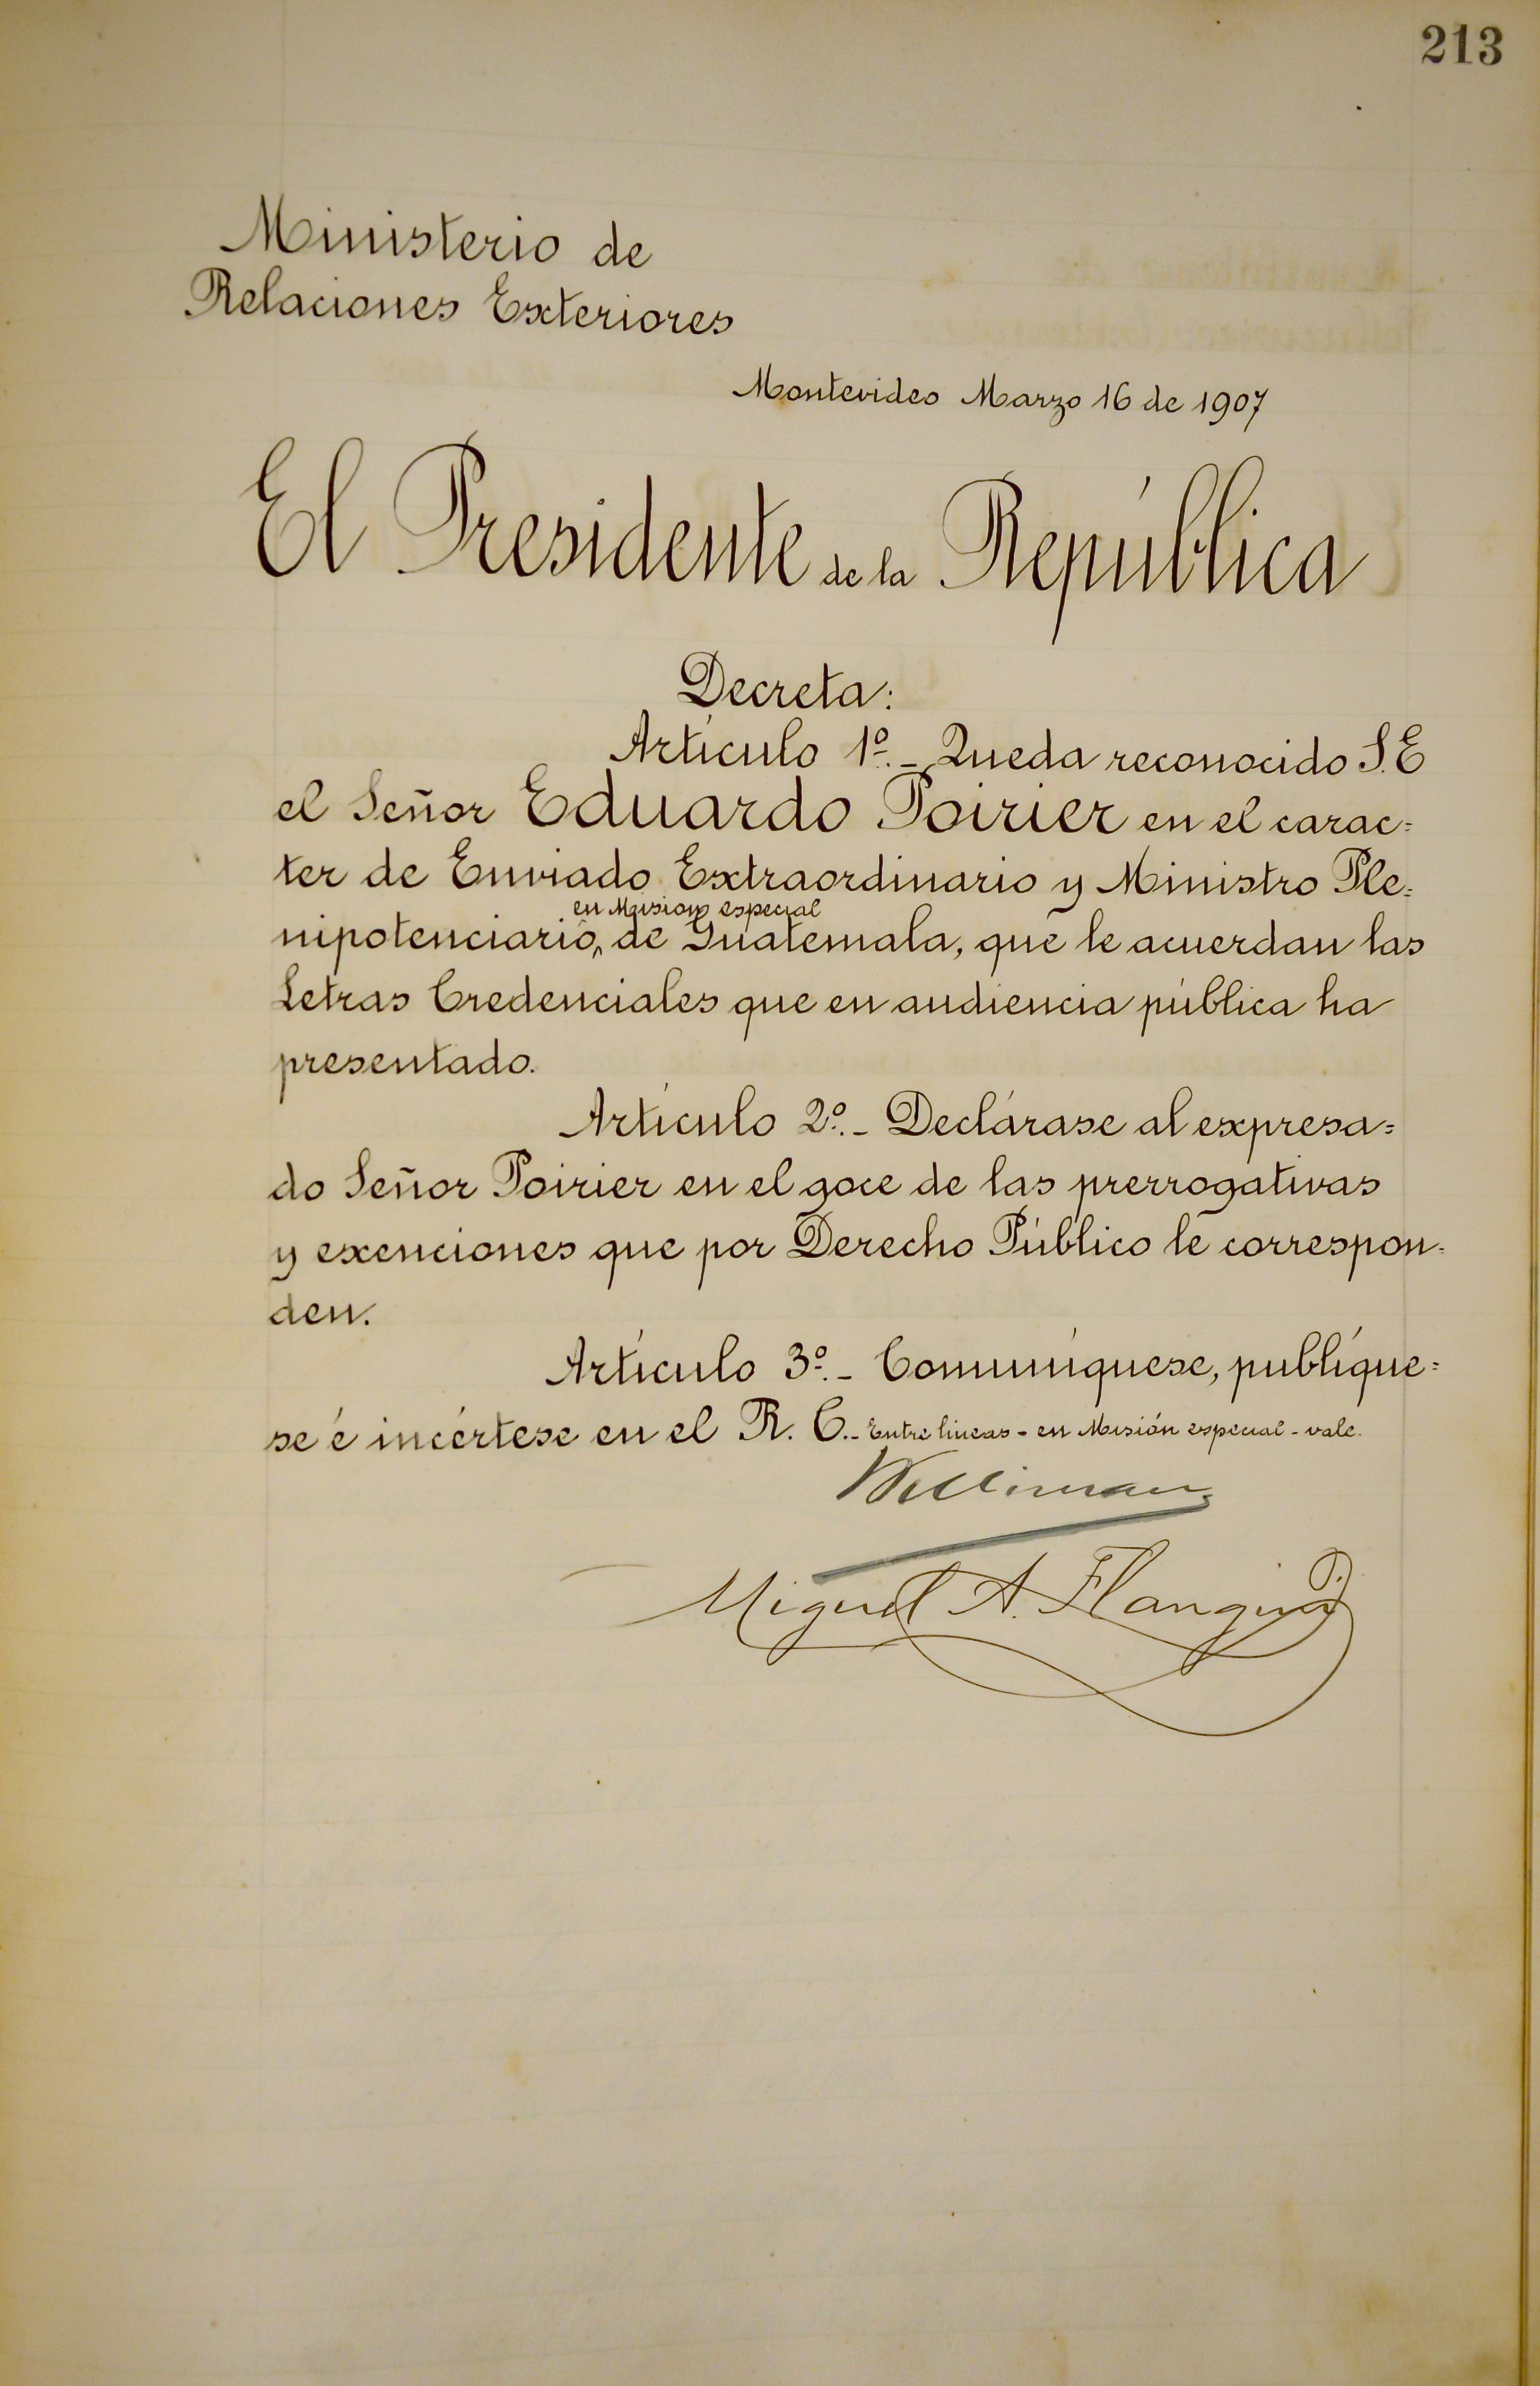 213
Ministerio de
Relaciones Exteriores
Montevideo Marzo 16 de 1907
El Presidente de la República
Decreta:
Artículo 1º.- Queda reconocido S.E
el Señor Eduardo Poirier en el carac=
ter de Enviado Extraordinario y Ministro Ple=
en Misión especial
nipotenciario, de Guatemala, que le acuerdan las
Letras Credenciales que en audiencia pública ha
presentado.
Artículo 2º.- Declárase al expresa=
do Señor Poirier en el goce de las prerrogativas
y exenciones que por Derecho Público le correspon=
den.
Artículo 3º.- Comuníquese, publíque=
se é incértese en el R. C.- Entre lineas - en Misión especial - vale.
Williman
Miguel A. Flangini